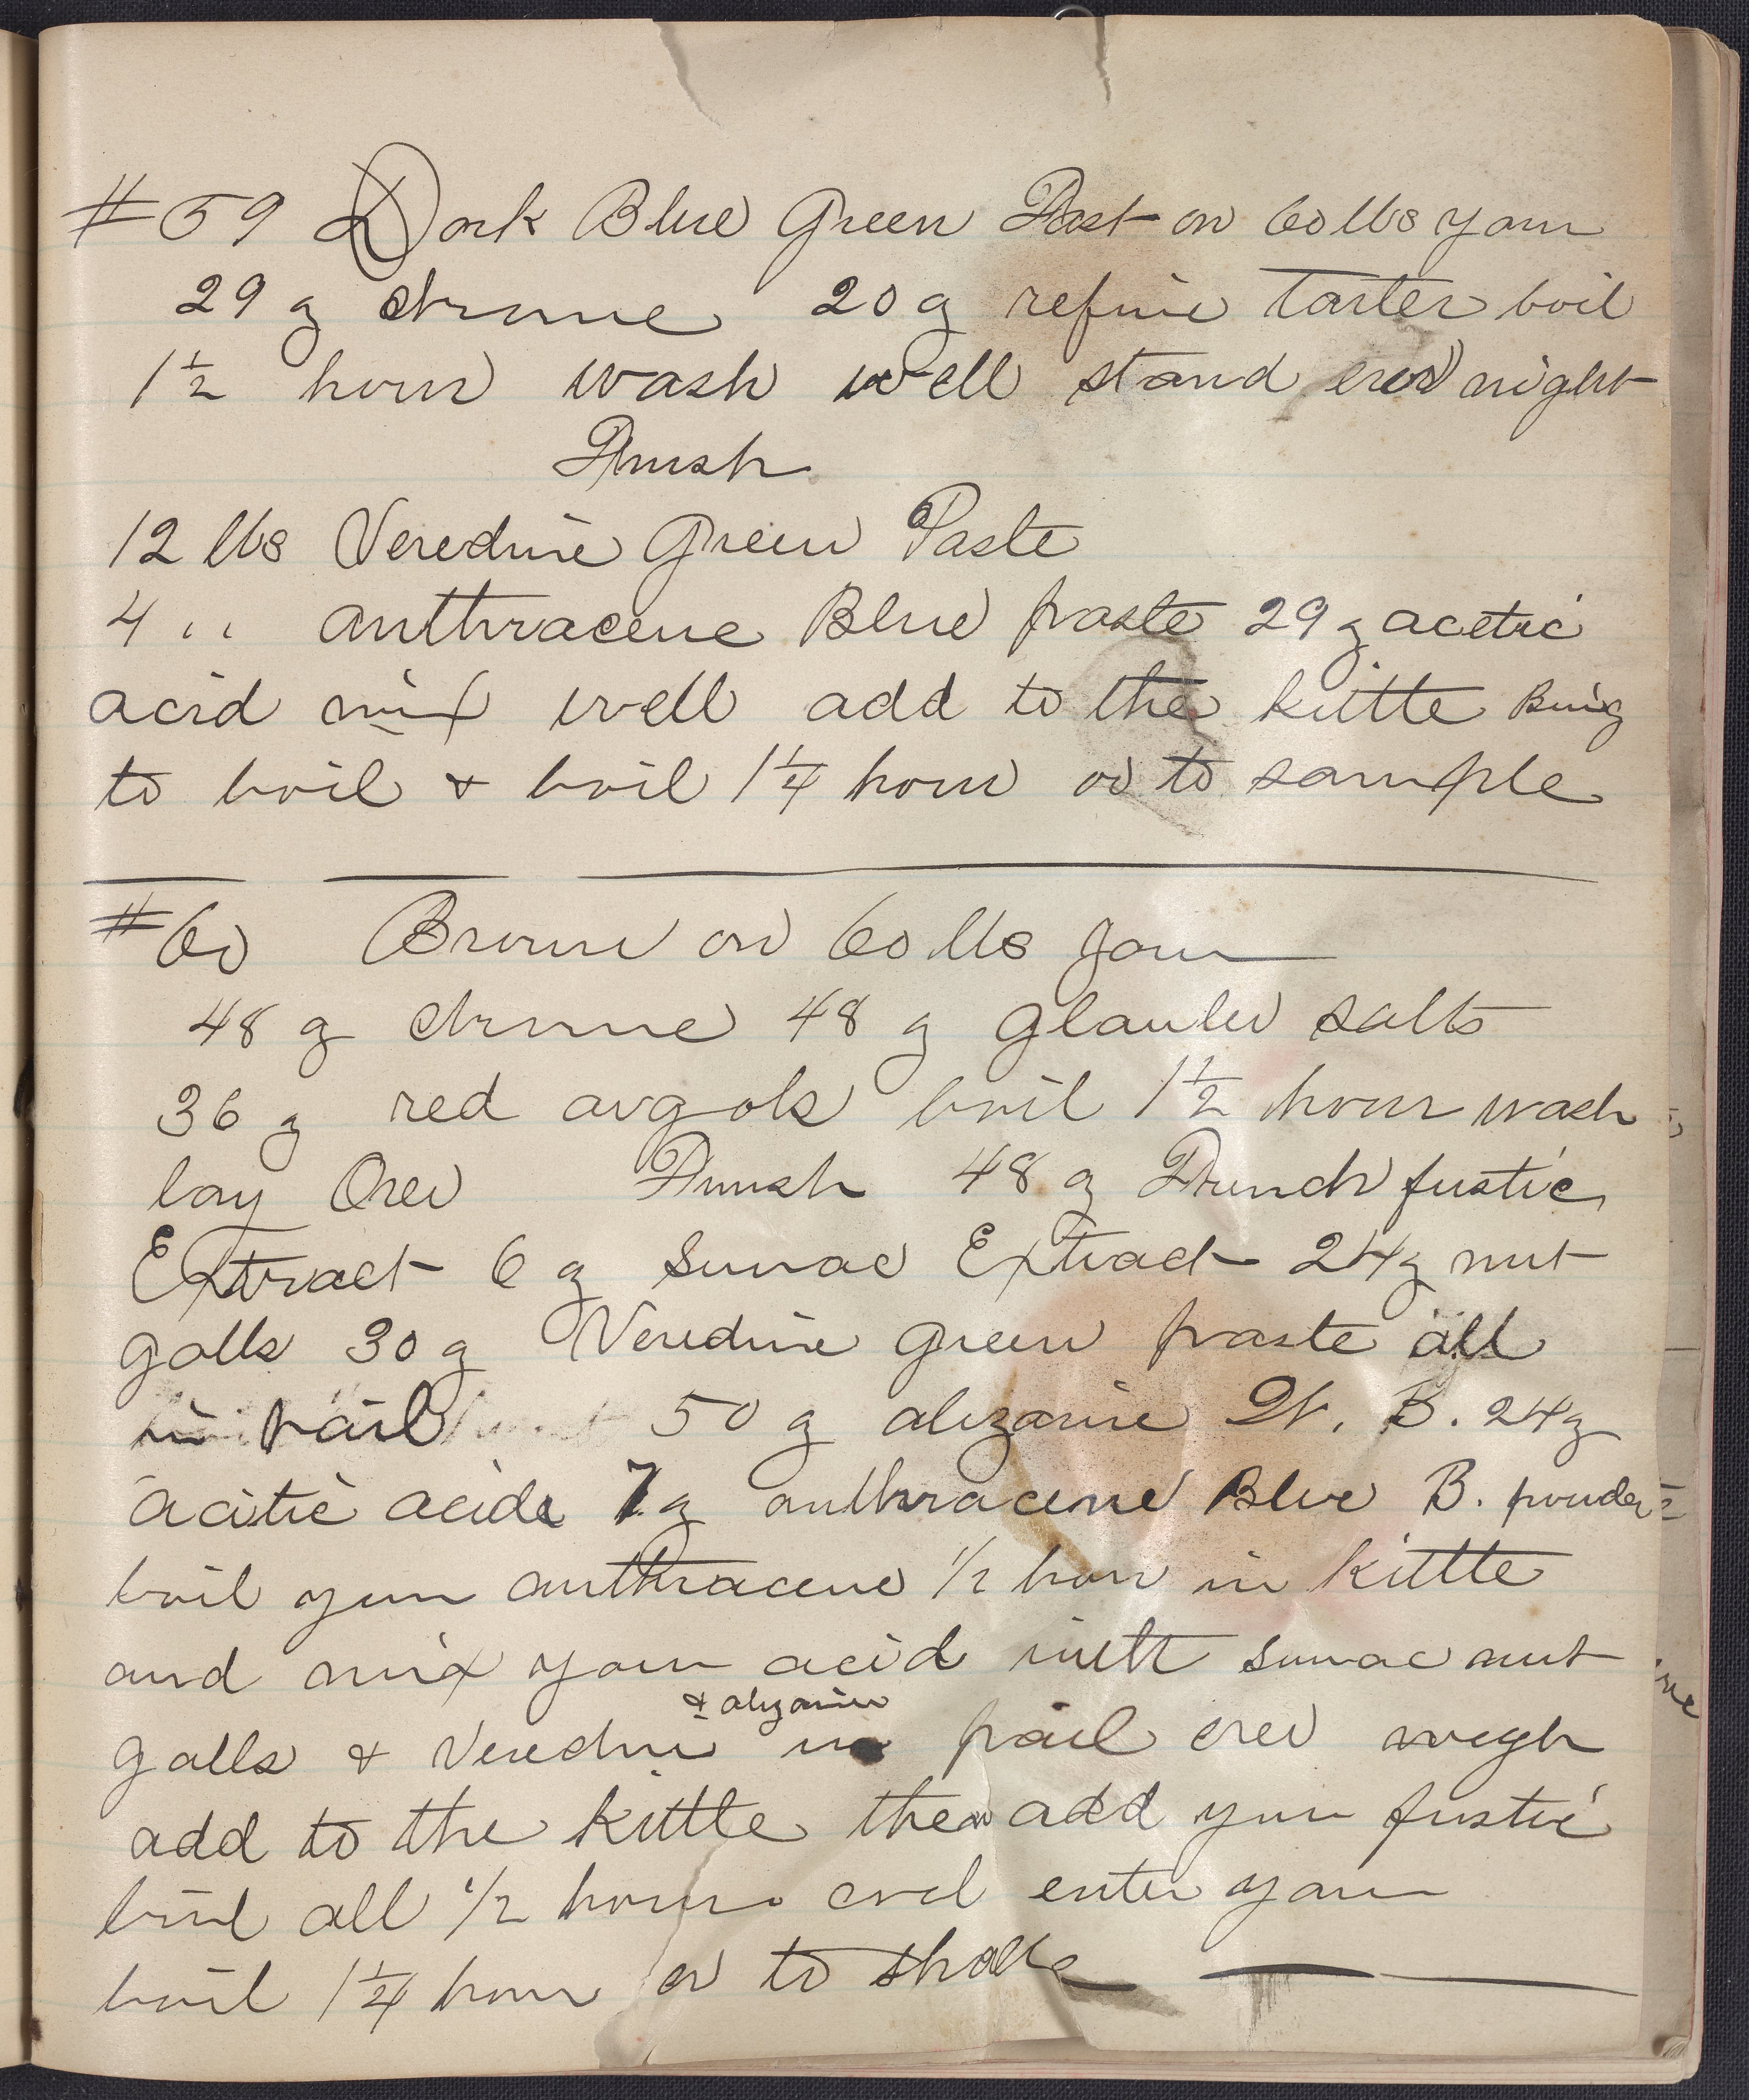 #59 Dark Blue Green Fast on 60 lbs yarn
29 z chrome 20 z refine Tarter boil
1 1/2 hour wash well stand over night
Finish
12 lbs Veredine Green Paste
4 " anthracene Blue paste 29 z acetic
acid mix well add to the kittle Bring
to boil & boil 1 1/4 hour or to sample
#60 Brown on 60 lbs yarn
48 z chrome 48 z glauber salts
36 z red argols boil 1 1/2 hour wash
lay Over Finish 48 z French fustic
Extract 6 z Sumac Extract 24 z nut
galls 30 z Veredine green paste all
in pail 50 z alizarine W. B. 24 z
acitic acide 7 z anthracene Blue B. powder
boil your anthracene 1/2 hour in kittle
and mix your acid with sumac nut
galls & Veredine & alizarine in pail over nigh
add to the kittle then add your fustic
boil all 1/2 hour and enter yarn
boil 1 1/4 hour or to shade